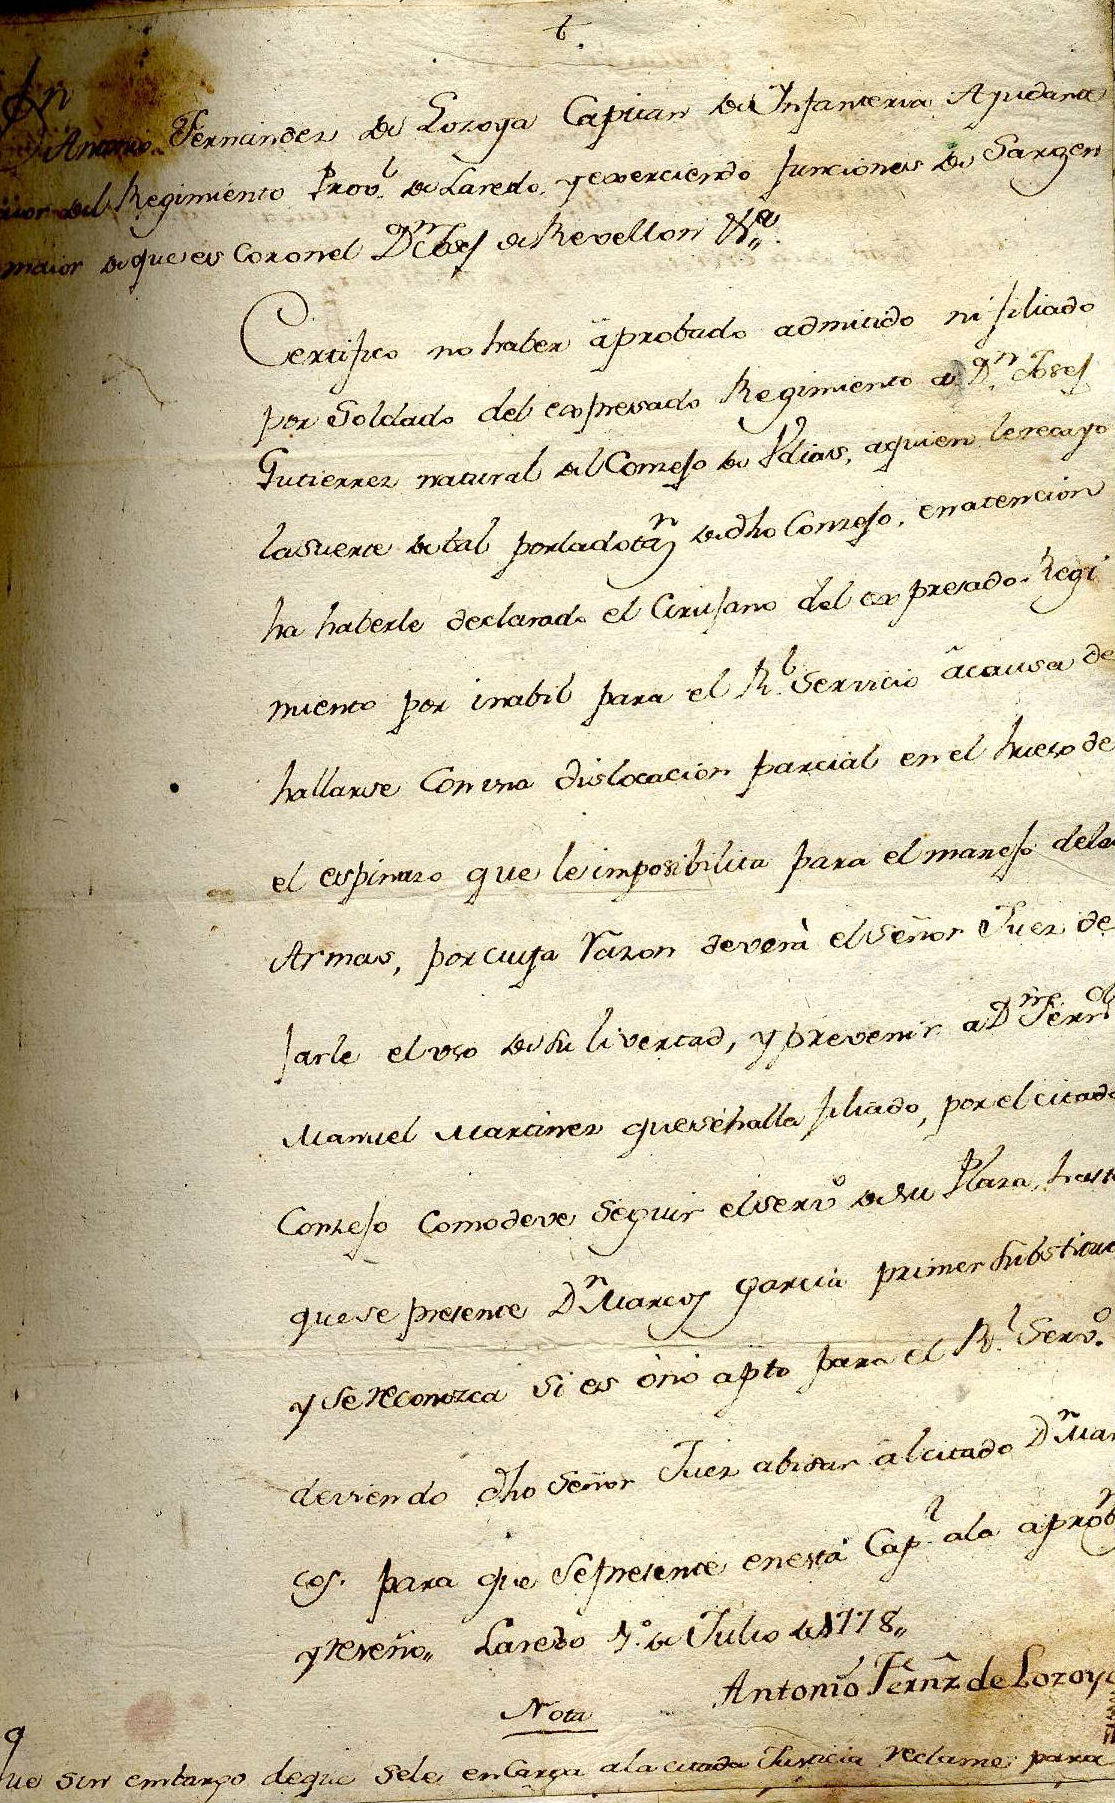 t.
Dn
Antonio Fernandez de Lozoya Capitan de Infanteria Ayudante
maior del Regimiento Prov.l de Laredo, y exerciendo funciones de Sargen
maior de que es Coronel Dn Josef de Revellon &.a
Certifico no haber aprobado admitido ni filiado
por Soldado del expresado Regimiento a Dn Josef
Gutierrez natural del Conzejo de Udias, aquien le recayo
la suerte de tal por la dotan de dho Conzejo, en atencion
ha haberle declarado el Cirujano del expresado Regi
miento por inabil para el Rl. Servicio à causa de
hallarse con una dislocacion parcial en el hueso de
el espinazo que le imposibilita para el manejo de las
Armas, por cuya razon deverà el Señor Juez de
jarle el uso de su livertad, y prevenir a Dn Ferndo
Manuel Martinez que se halla filiado, por el citado
Conzejo como deve seguir el servo de su Plaza, hasta
que se presente Dn Marcos Garcia primer substituto
y se reconozca si es ònò apto para el Rl. Servo.
deviendo dho Señor Juez abisar al citado Dn Mar
cos. para que se presente en esta Capl. a la aprobn
y reseño,, Laredo 1.o de Julio de 1778,,
Antonio Fernz de Lozoya
Nota
Que sin embargo de que se le encarga a la citada Justicia reclame para